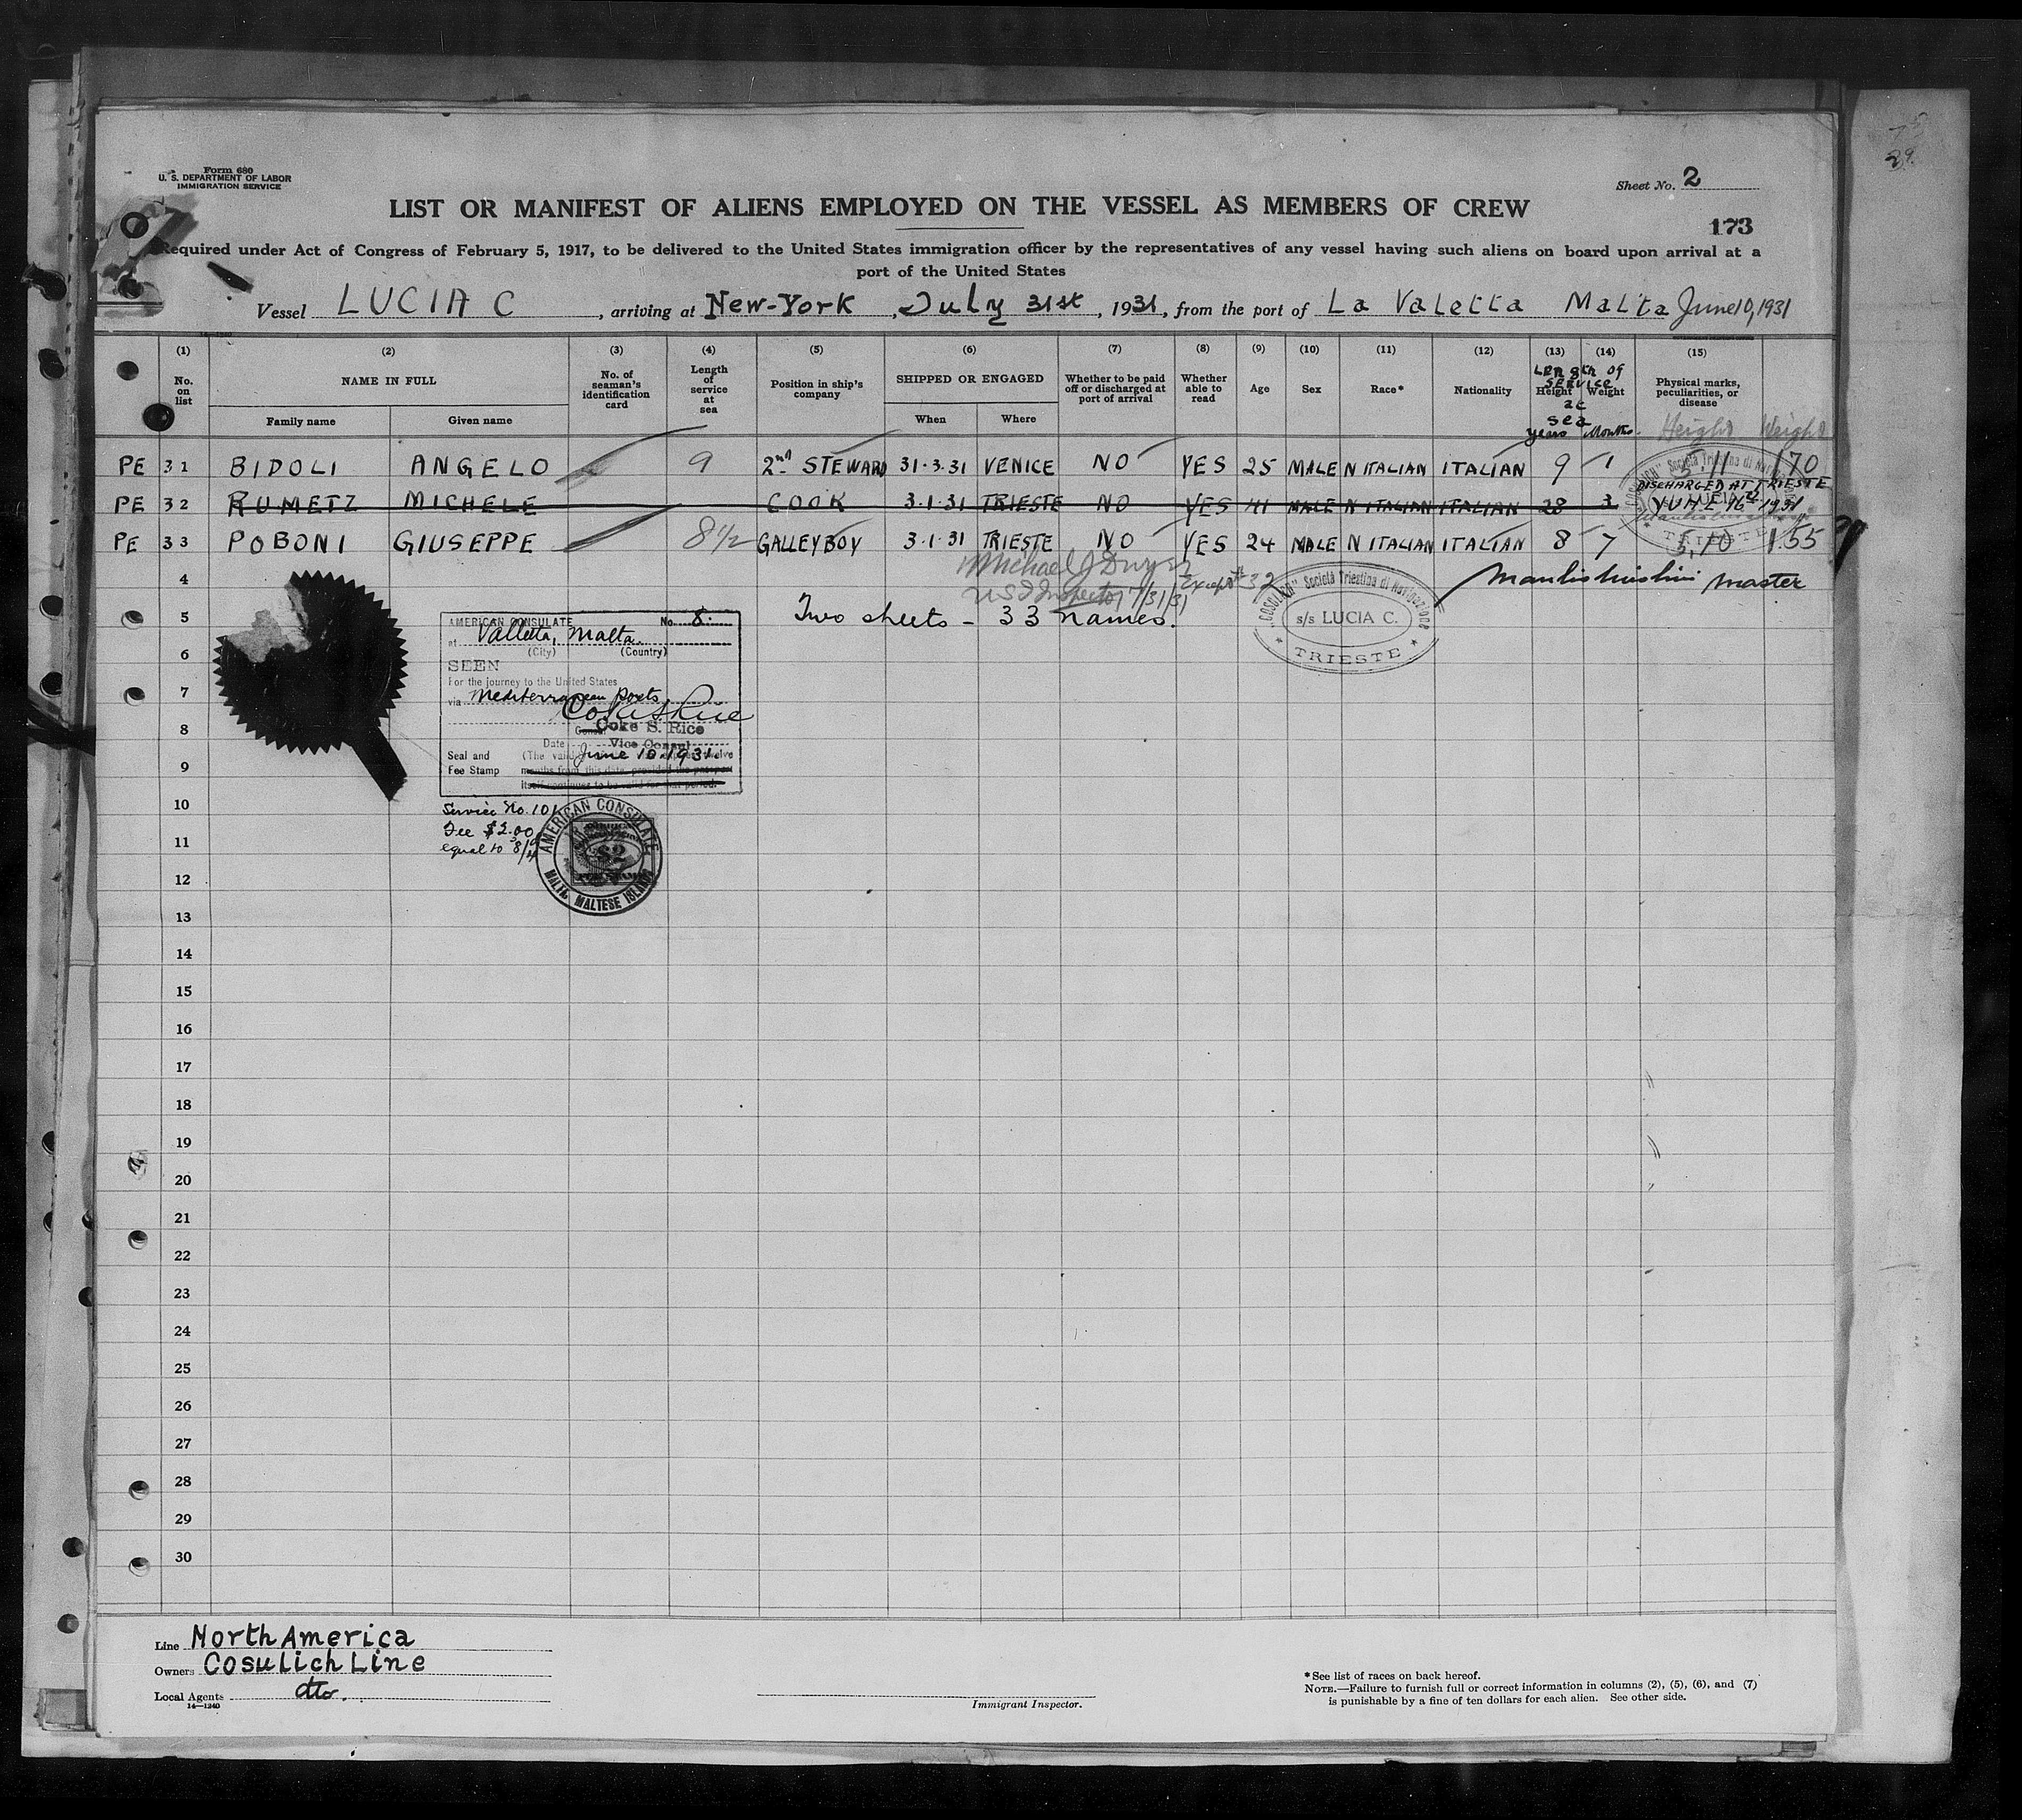 Form 680
U. S. DEPARTMENT OF LABOR
IMMIGRATION SERVICE
Sheet No. 2
LIST OR MANIFEST OF ALIENS EMPLOYED ON THE VESSEL AS MEMBERS OF CREW
173
Required under Act of Congress of February 5, 1917, to be delivered to the United States immigration officer by the representatives of any vessel having such aliens on board upon arrival at a
port of the United States
Vessel LUCIA C, arriving at New-York, July 31st, 1931, from the port of La Valetta Malta June 10, 1931
14-1240
(1) (2) (3) (4) (5) (6) (7) (8) (9) (10) (11) (12) (13) (14) (15)
No. on list
NAME IN FULL
Family name
Given name
No. of seaman's identification card
Length of service at sea
Position in ship's company
SHIPPED OR ENGAGED
When
Where
Whether to be paid off or discharged at port of arrival
Whether able to read
Age
Sex
Race*
Nationality
Length of service at sea
Height
Weight
years
Months
Physical marks, peculiarities, or disease
Height
Weight
PE 31 BIDOLI ANGELO 9 2nd STEWARD 31.3.31 VENICE NO YES 25 MALE N ITALIAN ITALIAN 9 1 5,11 170
DISCHARGED AT TRIESTE
PE 32 RUMETZ MICHELE COOK 3.1.31 TRIESTE NO YES 41 MALE N ITALIAN ITALIAN 28 3 16 1931
PE 33 POBONI GIUSEPPE 8½ GALLEYBOY 3.1.31 TRIESTE NO YES 24 MALE N ITALIAN ITALIAN 8 7 5,10 155
Michael J Dwyer
Except # 32
4 master
US Inspector 7/31/31
5 Two sheets - 33 names.
"COSULICH" Società Triestina di Navigazione
s/s LUCIA C.
TRIESTE
AMERICAN CONSULATE No. 8.
at Valletta, Malta
(City) (Country)
SEEN
For the journey to the United States
via Mediterranean ports
Coke S. Rice
Coke S. Rice
Vice Consul
Date June 10, 1931
Seal and
Fee Stamp
months from this date, provided the passport
itself continues to be valid for that period.
Service No. 101
Fee $2.00
equal to
AMERICAN CONSULATE
$2
MALTA, MALTESE ISLANDS
6
7
8
9
10
11
12
13
14
15
16
17
18
19
20
21
22
23
24
25
26
27
28
29
30
Line North America
Owners Cosulich Line
Local Agents dto.
14-1240
Immigrant Inspector.
*See list of races on back hereof.
NOTE.—Failure to furnish full or correct information in columns (2), (5), (6), and (7)
is punishable by a fine of ten dollars for each alien. See other side.